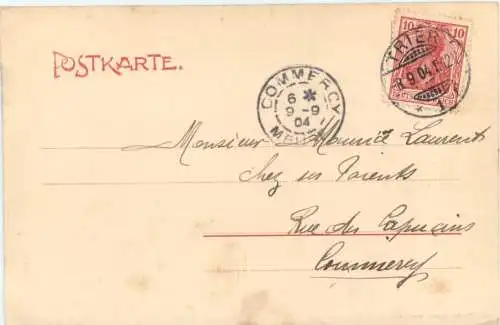 POSTKARTE.
10 10
TRIER
8.9.04.
* 1
COMMERCY
6 *
9-9
04
MEUSE
Monsieur Maurice Laurent
Chez ses Parents
Rue des Capucins
Commercy